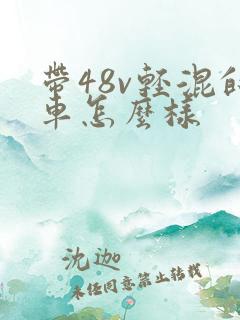 带48v轻混的
車怎麼樣
沈迦
未经同意禁止转载